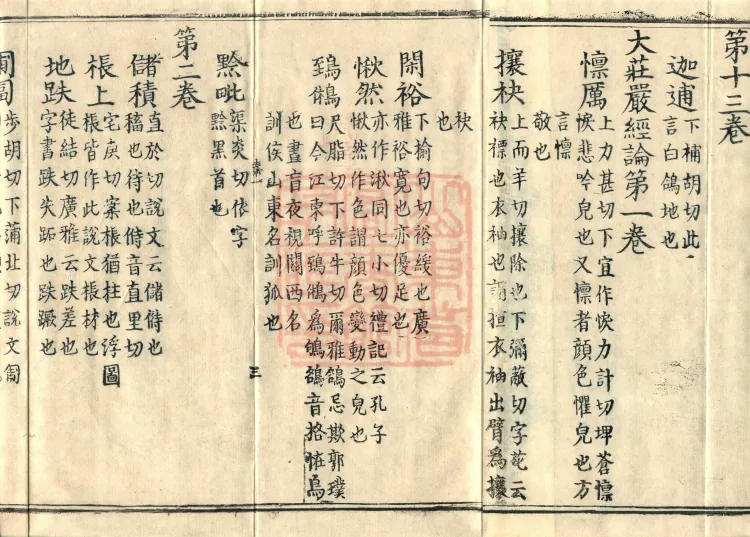 第十三卷
迦逋
下補胡切此
言白鴿地也
大莊嚴經論第一卷
懍厲
上力甚切下宜作悷力計切埤蒼懍
悷悲吟皃也又懍者顏色懼皃也方
言懍
敬也
攘袂
上而羊切攘除也下彌蔽切字苑云
袂褾也衣袖也謂揎衣袖出臂爲攘
袂
也
閑裕
下榆句切裕緩也廣
雅裕寬也亦優足也
愀然
亦作湫同七小切禮記云孔子
愀然作色謂顏色變動之皃也
鵄鵂
尺脂切下許牛切爾雅鵅忌欺郭璞
曰今江東呼鵄鵂爲鴝鵅音格恠鳥
也晝盲夜視關西名
訓侯山東名訓狐也
黔毗
渠炎切依字
黔黑首也
三
第二卷
儲積
直於切說文云儲偫也
稸也待也偫音直里切
棖上
宅庚切案棖猶柱也浮圖
棖皆作此說文棖材也
地跌
徒結切廣雅云跌差也
字書跌失跖也跌蹶也
步胡切下蒲北切說文匐